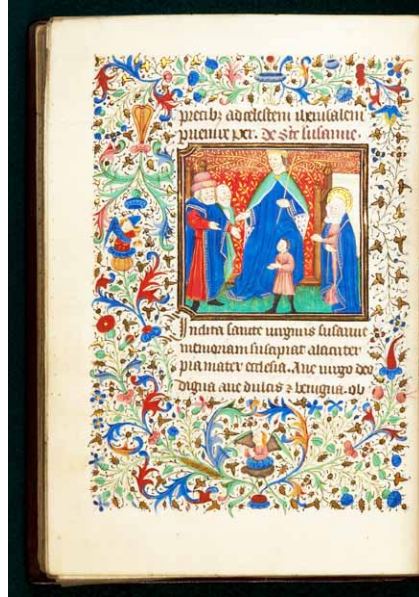 precibȝ ad celestem iherusalem
puenire per. De scē susanne.
Indita sancte virginis susanne
memoriam suscipiat alacriter
pia mater ecclesia. Ave virgo deo
digna ave dulcis ⁊ benigna. ob